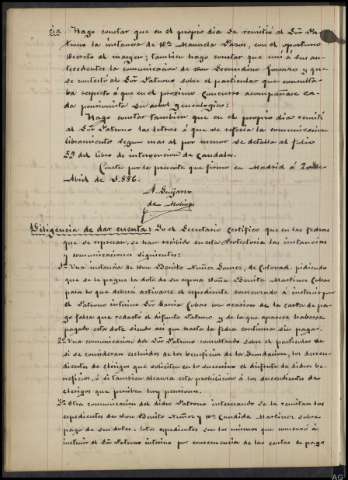 Hago constar que en el propio dia se remitió al Sr. Pa-
trono la instancia de Mª Manuela Varas, con el oportuno
decreto al margen; tambien hago constar que uní a sus an-
tecedentes la comunicacion de don Secundino y que
se contestó al Sr. Patrono sobre el particular que consulta-
ba respecto á que en el proximo concurso acompañase ca-
da pensionista su arbol genealogico:
Hago constar tambien que en el propio dia remití
al Sr. Patrono las letras á que se refería la comunicacion
libramiento segun mas al por menor se detalla al folio
59 del libro de intervencion de Caudales.
Conste por la presente que firmo en Madrid á 2 de
Abril de 1.886.
A. Quijano
de Molina
Diligencia de dar cuenta: Yo el Secretario certifico que en las fechas
que se expresan, se han recibido en esta Protectoria las instancias
y comunicaciones siguientes:
1ª Una instancia de don Benito Nuñez Gomez, de , pidiendo
que se le pague la dote de su esposa Doña Benita Martinez Cobas
para lo que debiera activarse el expediente comenzado á instruir por
el Patrono interino Sr. Garcia Cobas con ocasion de la carta de pa-
go falsa que redactó el difunto Patrono y de la que aparece haberse
pagado esta dote siendo asi que hasta la fecha continua sin pagar.
2ª Una comunicacion del Sr. Patrono consultando sobre el particular de
si se consideran excluidos de los beneficios de la Fundacion, los descen-
dientes de clerigos que soliciten en lo sucesivo el disfrute de dichos be-
neficios, ó si tambien alcanza esta prohibicion á los descendientes de
clerigos que perciben hoy pensiones.
3ª Otra comunicacion del dicho Patrono interesando se le remitan los
expedientes de don Benito Nuñez y Mª Candida Martinez sobre
pago de sus dotes. Estos expedientes son los mismos que comenzó á
instruir el Sr. Patrono interino por consecuencia de las cartas de pago
AG